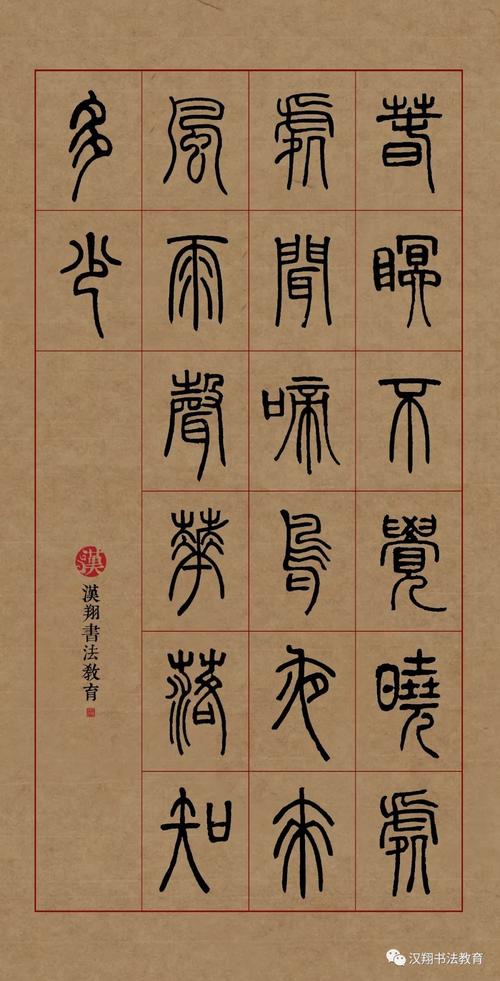 春眠不覺曉處
處聞啼鳥夜來
風雨聲華落知
多少
漢
漢翔書法教育
汉翔书法教育